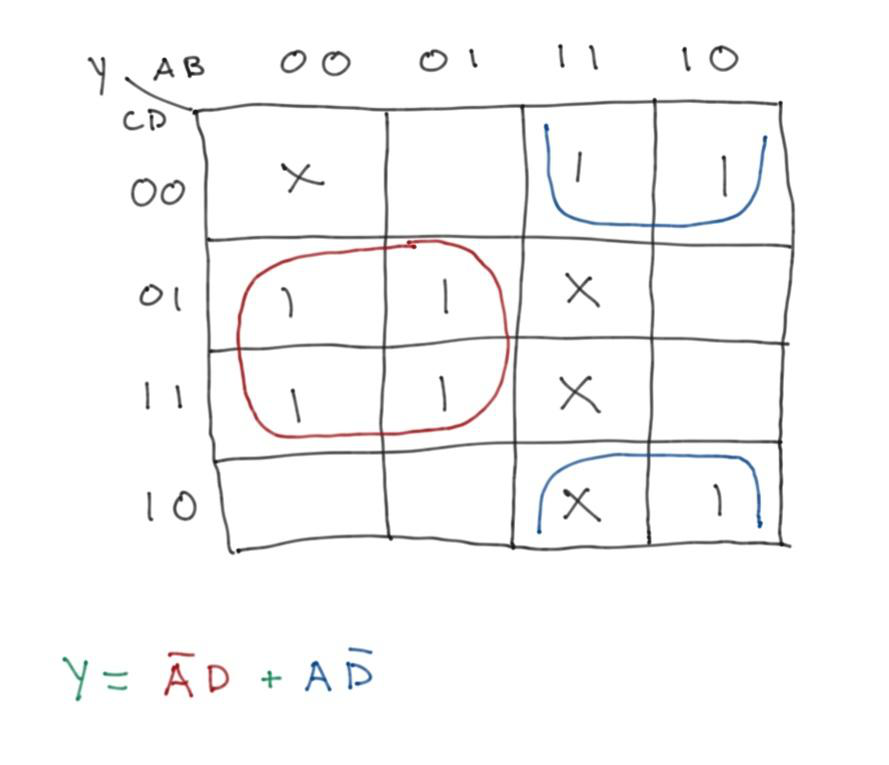 Y AB 00 01 11 10
CD
00 X 1 1
01 1 1 X
11 1 1 X
10 X 1
Y = A̅D + AD̅